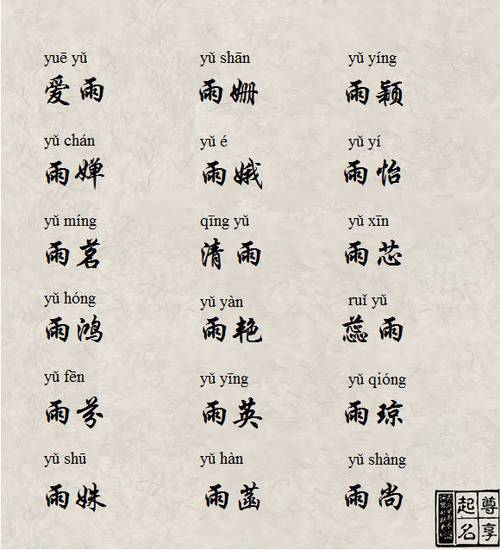 yuē yǔ yǔ shān yǔ yíng
爱雨 雨姗 雨颖
yǔ chán yǔ é yǔ yí
雨婵 雨娥 雨怡
yǔ míng qīng yǔ yǔ xīn
雨茗 清雨 雨芯
yǔ hóng yǔ yàn ruǐ yǔ
雨鸿 雨艳 蕊雨
yǔ fēn yǔ yīng yǔ qióng
雨芬 雨英 雨琼
yǔ shū yǔ hàn yǔ shàng
雨姝 雨菡 雨尚
尊享
起名